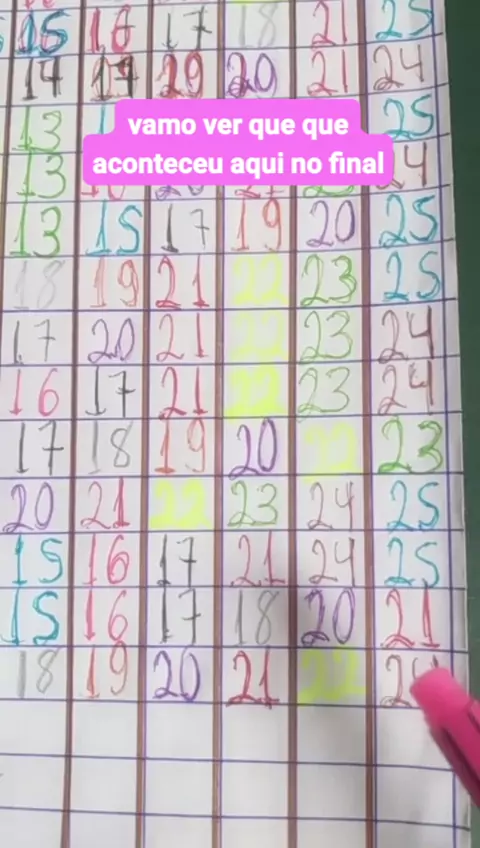 15 16 17 18 21 25
14 19 20 21 24
vamo ver que que
aconteceu aqui no final
13 25
13
13 15 17 19 20 25
18 19 21 22 23 25
17 20 21 22 23 24
16 17 21 22 23 24
17 18 19 20 22 23
20 21 22 23 24 25
15 16 17 21 24 25
15 16 17 18 20 21
18 19 20 21 22